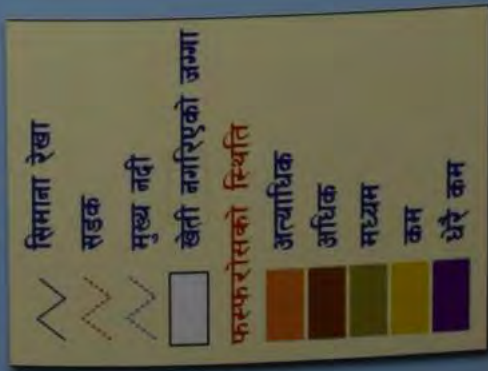 सिमाना रेखा
सडक
मुख्य नदी
खेती नगरिएको जग्गा
फस्फरोसको स्थिति
अत्याधिक
अधिक
मध्यम
कम
धेरै कम